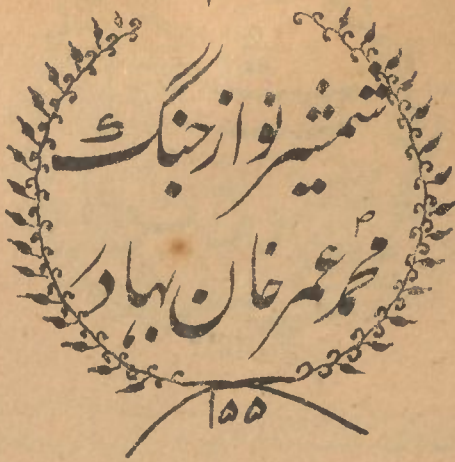 شمشیر نواز جنگ
محمد عمر خان بہادر
۱۵۵